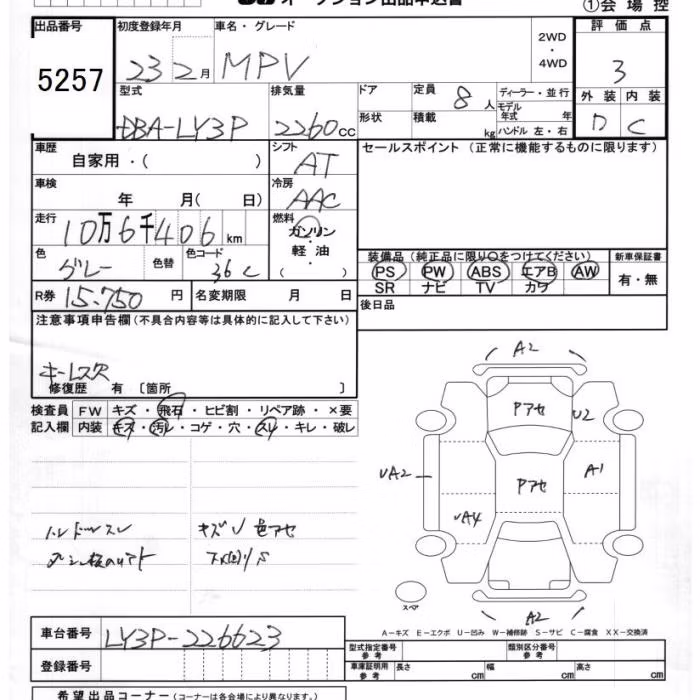 オークション出品申込書 ①会場控
出品番号 初度登録年月 車名・グレード 2WD ・ 4WD 評価点
5257 23 2月 MPV 3
型式 排気量 ドア 定員 8人 ディーラー・並行 外装 内装
DBA-LY3P 2260cc 形状 積載 kg モデル年式 年 ハンドル 左・右 D C
車歴 自家用・( ) シフト AT セールスポイント (正常に機能するものに限ります)
車検 年 月( 日) 冷房 AAC
走行 10万6千406km 燃料 ガソリン・軽油・( )
色 グレー 色替 色コード 36C 装備品 (純正品に限り○をつけてください) 新車保証書
PS PW ABS エアB AW 有・無
SR ナビ TV カワ
R券 15.750円 名変期限 月 日 後日品
注意事項申告欄 (不具合内容等は具体的に記入して下さい)
キーレス欠
修復歴 有 [箇所 ]
検査員 FW キズ・飛石・ヒビ割・リペア跡・×要
記入欄 内装 キズ・汚レ・コゲ・穴・スレ・キレ・破レ
A2
Pアセ U2
UA2 Pアセ A1
UA4
ハンドルスレ キズ 色アセ
スペア A2
A-キズ E-エクボ U-凹み W-補修跡 S-サビ C-腐食 XX-交換済
車台番号 LY3P-226623
型式指定番号 参考 類別区分番号 参考
登録番号 車庫証明用 参考 長さ cm 幅 cm 高さ cm
希望出品コーナー (コーナーは各会場により異なります。)